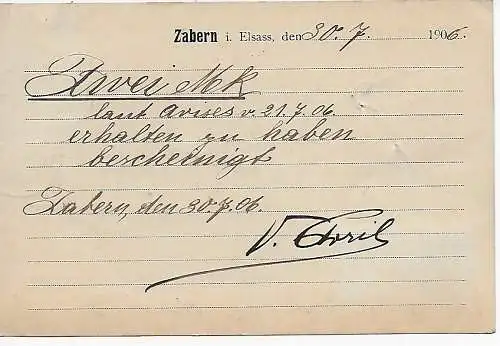 Zabern i. Elsass, den 30. 7. 1906.
Zwei Mk
laut Avises v. 21.7.06.
erhalten zu haben
bescheinigt
Zabern, den 30.7.06.
V.